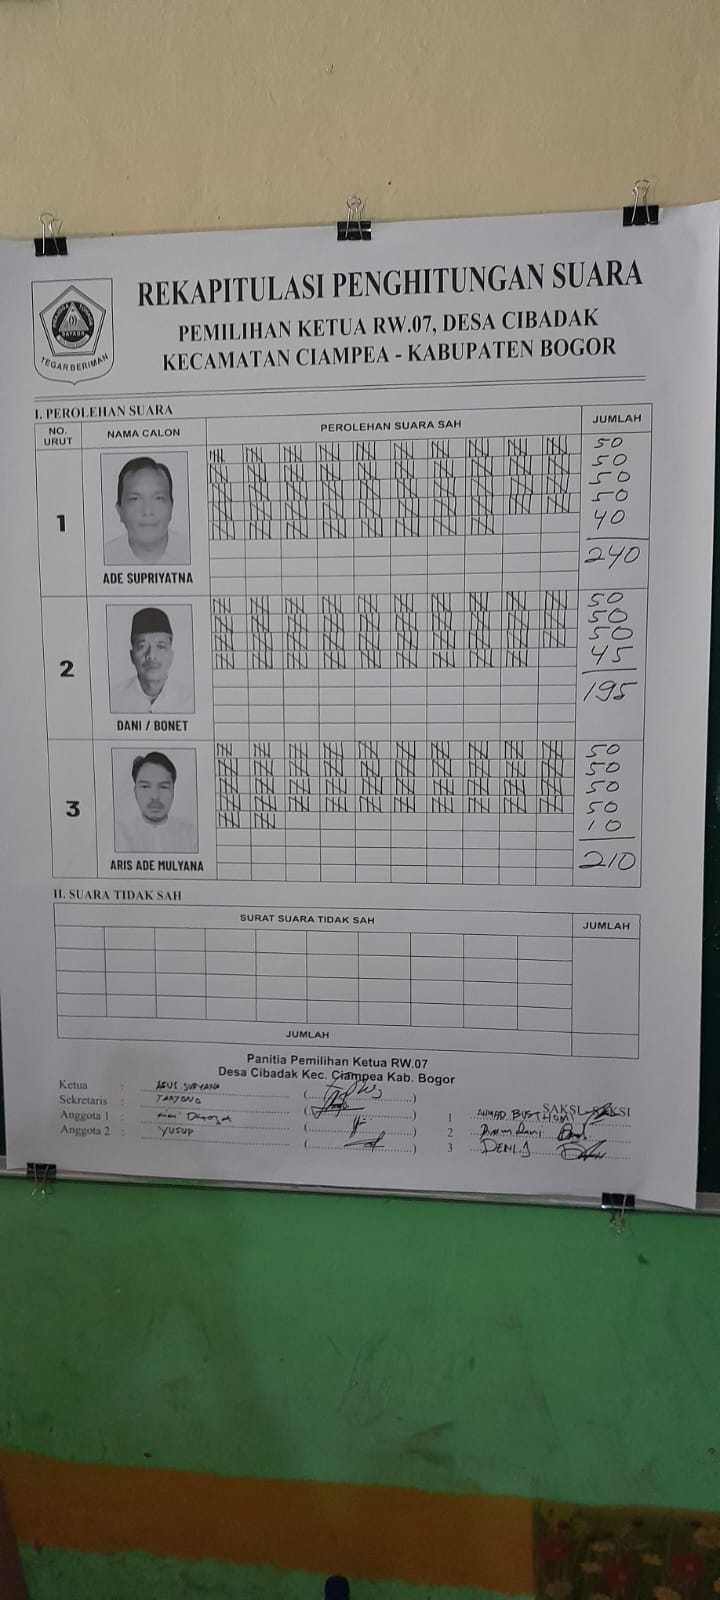 REKAPITULASI PENGHITUNGAN SUARA
PEMILIHAN KETUA RW.07, DESA CIBADAK
KECAMATAN CIAMPEA - KABUPATEN BOGOR
TEGAR BERIMAN
I. PEROLEHAN SUARA
NO. URUT NAMA CALON PEROLEHAN SUARA SAH JUMLAH
1
ADE SUPRIYATNA
50
50
50
50
40
240
2
DANI / BONET
50
50
50
45
195
3
ARIS ADE MULYANA
50
50
50
50
10
210
II. SUARA TIDAK SAH
SURAT SUARA TIDAK SAH JUMLAH
JUMLAH
Panitia Pemilihan Ketua RW.07
Desa Cibadak Kec. Ciampea Kab. Bogor
Ketua : AGUS SURYANA
Sekretaris :
Anggota 1 :
Anggota 2 : YUSUP
SAKSI-SAKSI
1 AHMAD BUSTHOMI
2
3